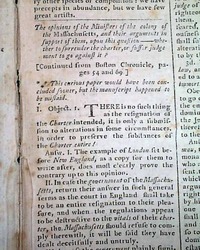 other species of composition? we have
great artists.
The opinions of the Ministers of the colony of
the Massachusetts, and their arguments in
support of them, upon this question
ther to surrender the charter, or suffer judge-
ment to go against it?
[Continued from Boston Chronicle,
pages 54 and 69.]
This curious paper would have been con-
cluded sooner, but the manuscript happened to
be mislaid.
1. Object. 1. THERE is no such thing
as the resignation of
the Charter intended, it is only a submis-
sion to alterations in some circumstances,
in order to preserve the substance of
the Charter entire!
Answ. 1. The example of London set be-
fore New England, as a copy for them to
write after, does most clearly prove the
contrary up to this opinion.
II. In case the government of the Massachu-
setts, return their answer in such general
terms as the court in England shall take
to be an entire resignation to their plea-
sure, and when the regulations appear
to be destructive to the vitals of their char-
ter, the Massachusetts should refuse to com-
ply therewith, it will be said they have
dealt deceitfully and untruly.